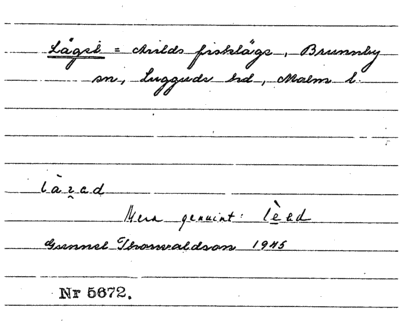 Lägel = Arilds fiskläge, Brunnby
sn, Luggude hd, Malm l.
làʒ̬ad
Mera genuint: lèed
Gunnel Thorvaldson 1945
Nr 5672.